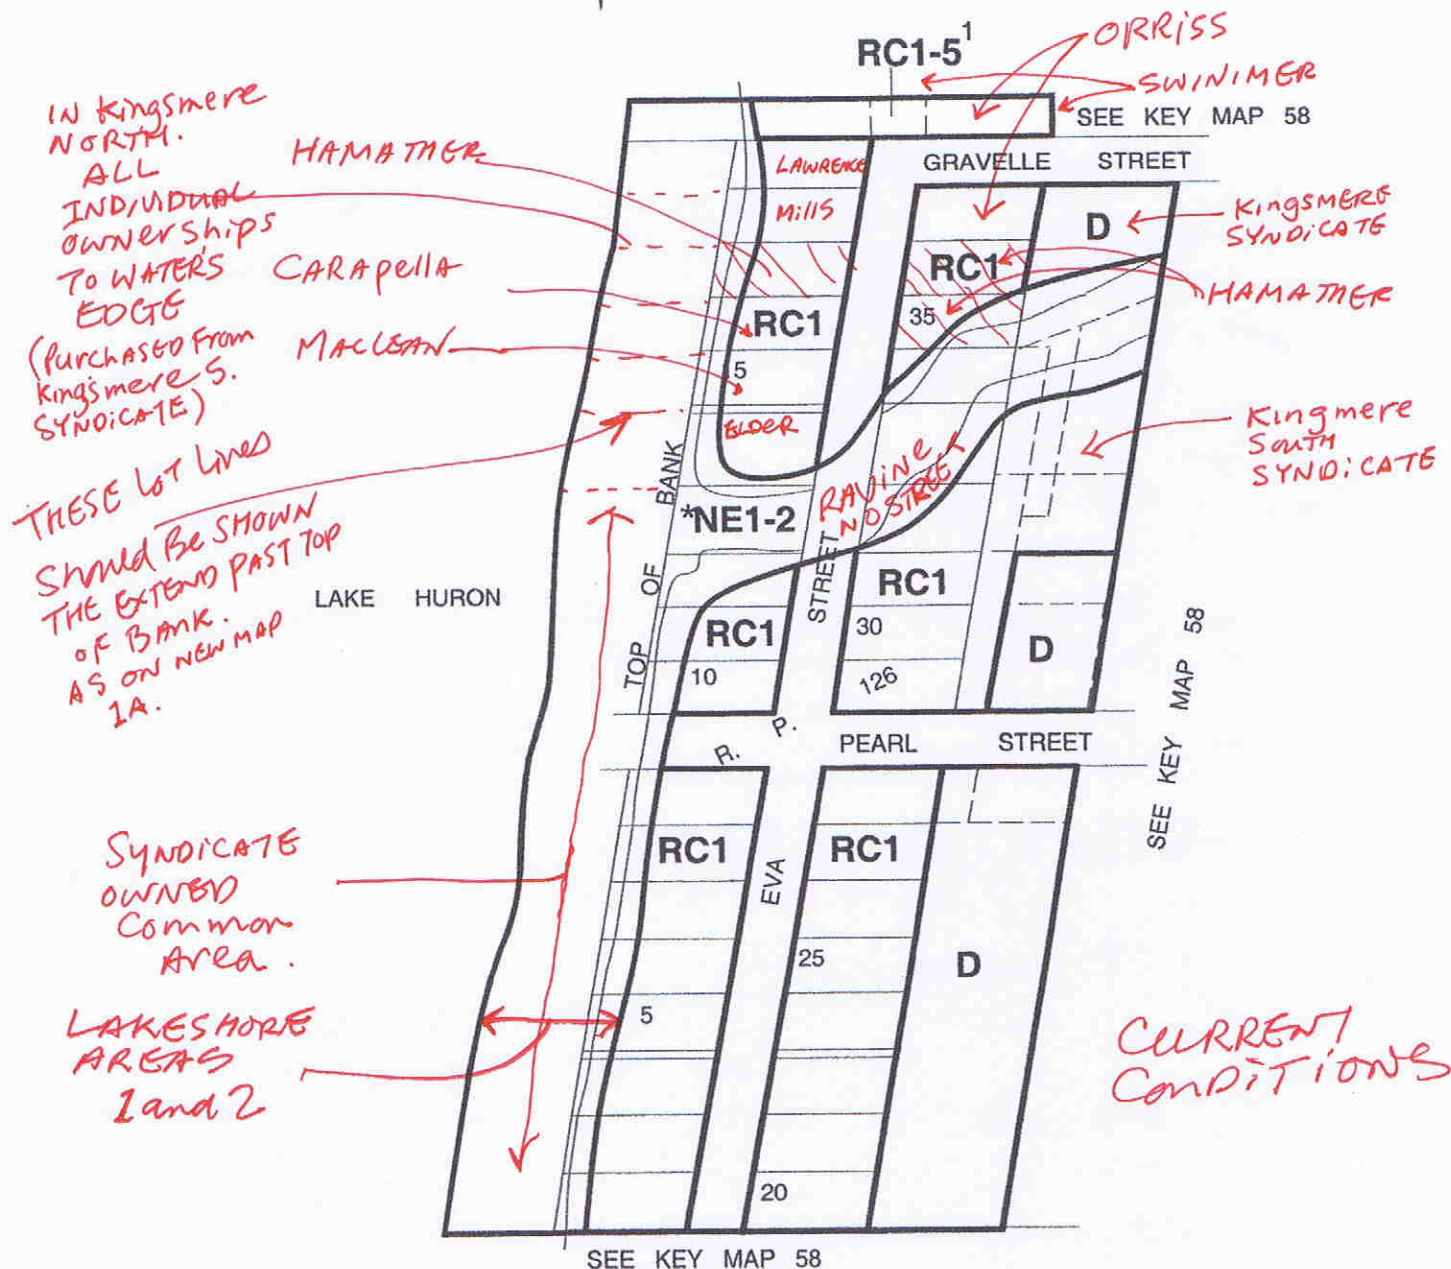 RC1-5¹
ORRISS
SWINIMER
SEE KEY MAP 58
IN Kingsmere
NORTH.
ALL
INDIVIDUAL
OWNERSHIPS
TO WATER'S
EDGE
(Purchased From
Kingsmere S.
SYNDICATE)
HAMATHER
LAWRENCE
GRAVELLE STREET
Mills
D
Kingsmere
SYNDICATE
RC1
HAMATHER
CARApellA
RC1
35
MACLEAN
5
ELDER
Kingmere
South
SYNDICATE
THESE LOT Lines
Should Be SHOWN
THE EXTEND PAST TOP
OF BANK.
AS ON NEW MAP
1A.
RAVINE
NO STREET
*NE1-2
TOP OF BANK
LAKE HURON
STREET
RC1
RC1
30
D
10
126
SEE KEY MAP 58
R. P.
PEARL STREET
SYNDICATE
OWNED
Common
Area.
RC1
RC1
EVA
25
D
LAKESHORE
AREAS
1 and 2
5
CURRENT
CONDITIONS
20
SEE KEY MAP 58